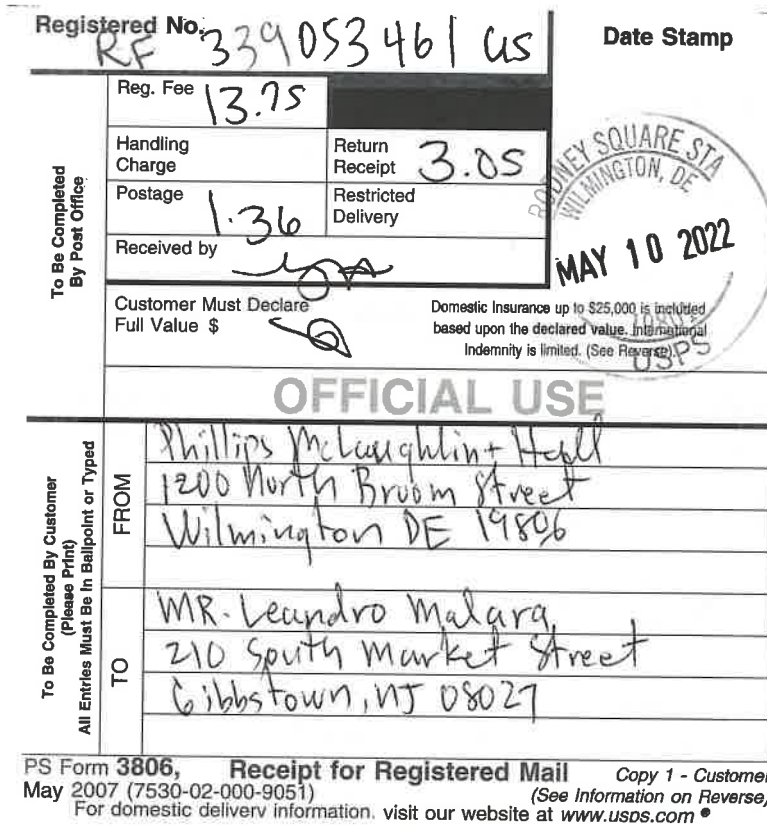 Registered No.
RF 339053461 US
Date Stamp
To Be Completed
By Post Office
Reg. Fee 13.75
Handling
Charge
Return
Receipt 3.05
Postage 1.36
Restricted
Delivery
Received by
RODNEY SQUARE STA
WILMINGTON, DE
MAY 10 2022
USPS
Customer Must Declare
Full Value $
Domestic Insurance up to $25,000 is included
based upon the declared value. International
Indemnity is limited. (See Reverse).
OFFICIAL USE
To Be Completed By Customer
(Please Print)
All Entries Must Be in Ballpoint or Typed
FROM
Phillips McLaughlin + Hall
1200 North Broom Street
Wilmington DE 19806
TO
MR. Leandro Malara
210 South Market Street
Gibbstown, NJ 08027
PS Form 3806, Receipt for Registered Mail Copy 1 - Customer
May 2007 (7530-02-000-9051) (See Information on Reverse)
For domestic delivery information, visit our website at www.usps.com ®